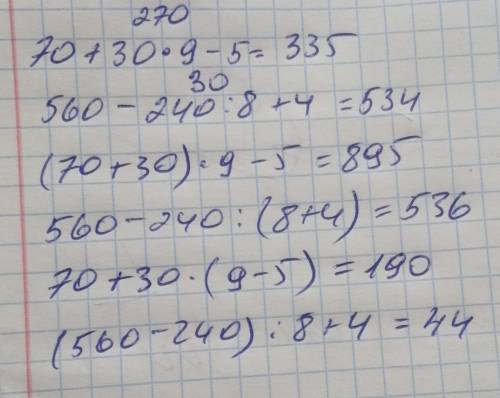 270
70+30·9-5= 335
30
560-240:8+4 =534
(70+30)·9-5 =895
560-240:(8+4)=536
70+30·(9-5)=190
(560-240):8+4 =44